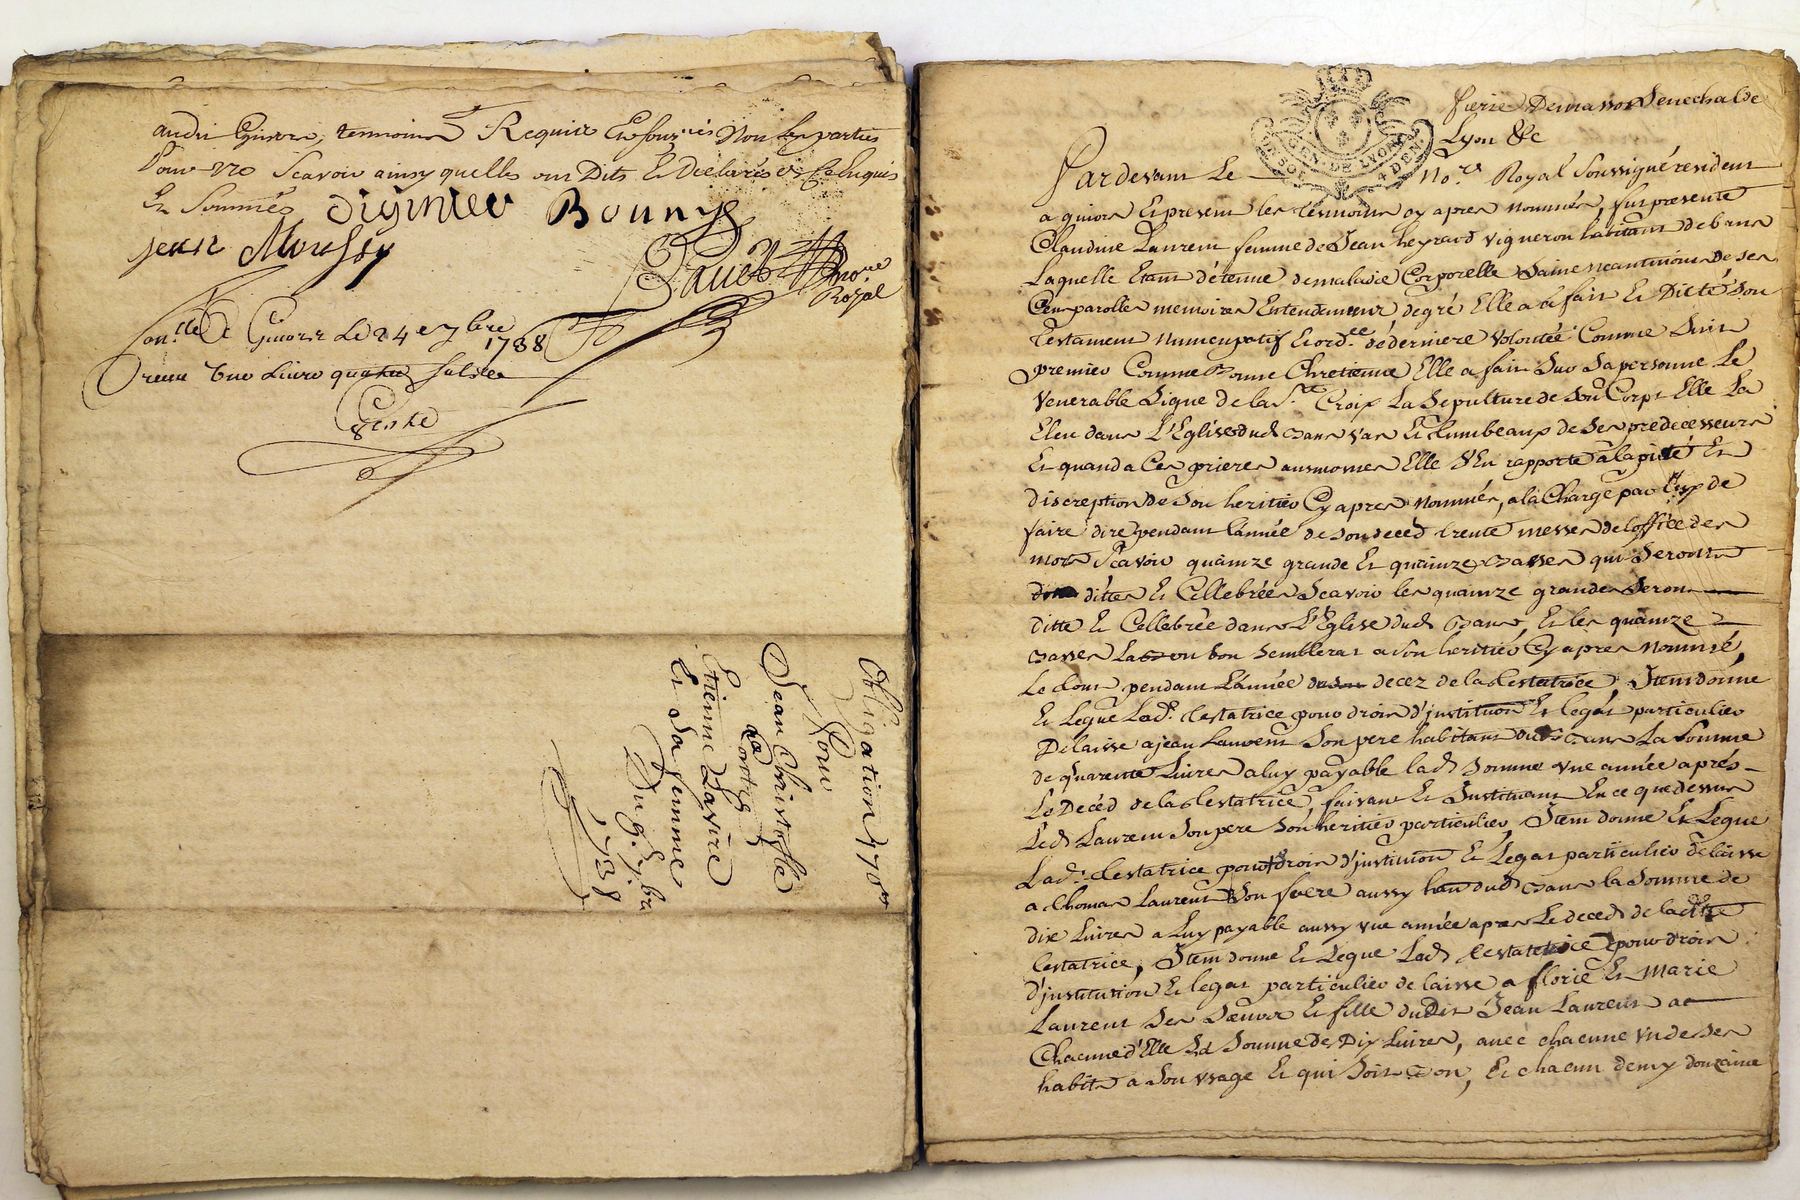 témoins Requis non les parties
pour ne Scavoir ainsy quelles ont Dits Et Declarés de ce Enquis
Et Sommés Diginlev Bouny
jean Moussy
noire
Royal
Con.lle A Givors Le 24e 7bre
1738
reçeu une Livre quatre
Obligation 170lt
Pour
Jean Christophle
Contre
Etienne Lavire
Et Sa femme
Du 9. 7.bre
1738
Senechal de
Lyon &c
GEN. DE LYON
4 DEN.
Pardevant Le No.re Royal Soussigné resident
a givors Et present les témoins cy apres nommés, fut presente
Claudine Laurent femme de Jean heyraud vigneron habitant de bans
Laquelle Etant détenue de maladie Corporelle Saine neantmoins de ses
Sens parolles memoires Entendement, de gré Elle a fait Et Dicté Son
Testament nuncupatif Et ord.ce de derniere volontée Comme Suit
premier Comme Bonne Chretienne Elle a fait Sur Sa personne Le
Venerable Signe de la S.te Croix La Sepulture de Son Corps Elle La
Eleu dans L'Eglise dud. Bans Et tumbeaux de Ses predecesseurs
Et quand a Ces prieres aumosnes Elle S'En rapporte a la pieté Et
discreption de Son heritier Cy apres nommés, a la Charge par de
faire dire pendant l'année de Son deced trente messes de l'office des
morts Scavoir quainze grande Et quainze Basses qui Seronts
dittes Et Cellebrées Scavoir les quainze grandes Seront
ditte Et Cellebrée dans L'Eglise dud. Bans, Et les quainze
Basses La ou bon Semblerat a Son heritier Cy apres nommé,
Le tout pendant L'année decez de la testatrice, Item donne
Et Legue Lad. testatrice pour droit d'institution Et legat particulier
Delaisse a jean Laurent Son pere habitant dud. Bans La Somme
de quarente Livres a luy payable lad. Somme une année aprés
Le Decéd de la testatrice, faisant Et Instituant En ce que dessus
Led. Laurent Son pere Son heritier particulier, Item donne Et Legue
Lad. testatrice pour droit d'institution Et Legat particulier delaisse
a thomas Laurent Son frere aussy dud. Bans la Somme de
dix Livres a Luy payable aussy une année apres Le deced de laditte
testatrice, Item donne Et Legue Lad. testatrice pour droit
d'institution Et legat particulier delaisse a florie Et Marie
Laurent Ses Soeurs Et fille dudit Jean Laurent a
Chacune d'Elle La Somme de Dix Livres, avec chacune un de Ses
habits a Son usage Et qui Soit Bon, Et chacun demy douzaine